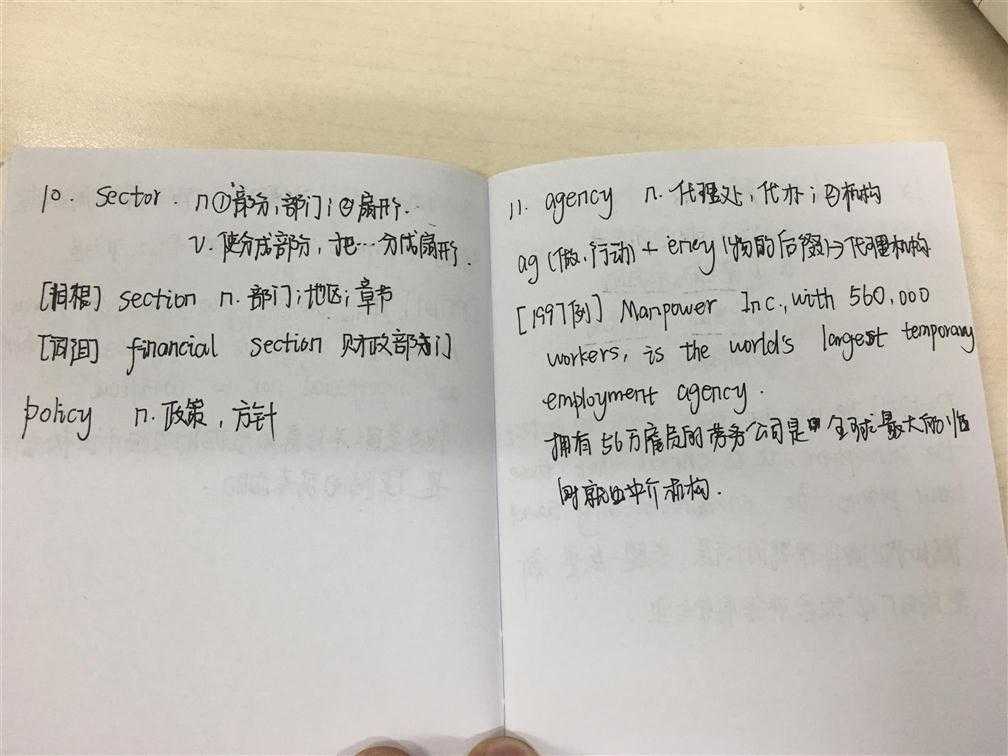 10. sector. n ①部分;部门;②扇形.
v. 使分成部分,把…分成扇形.
[相根] section n. 部门;地区;章节
[词组] financial section 财政部门
policy n. 政策,方针
11. agency n. 代理处,代办;②机构
ag (做,行动) + ency (物的后缀)→代理机构
[1997例] Manpower Inc., with 560,000
workers, is the world's largest temporary
employment agency.
拥有56万雇员的劳务公司是 全球最大的临
时就业中介机构.